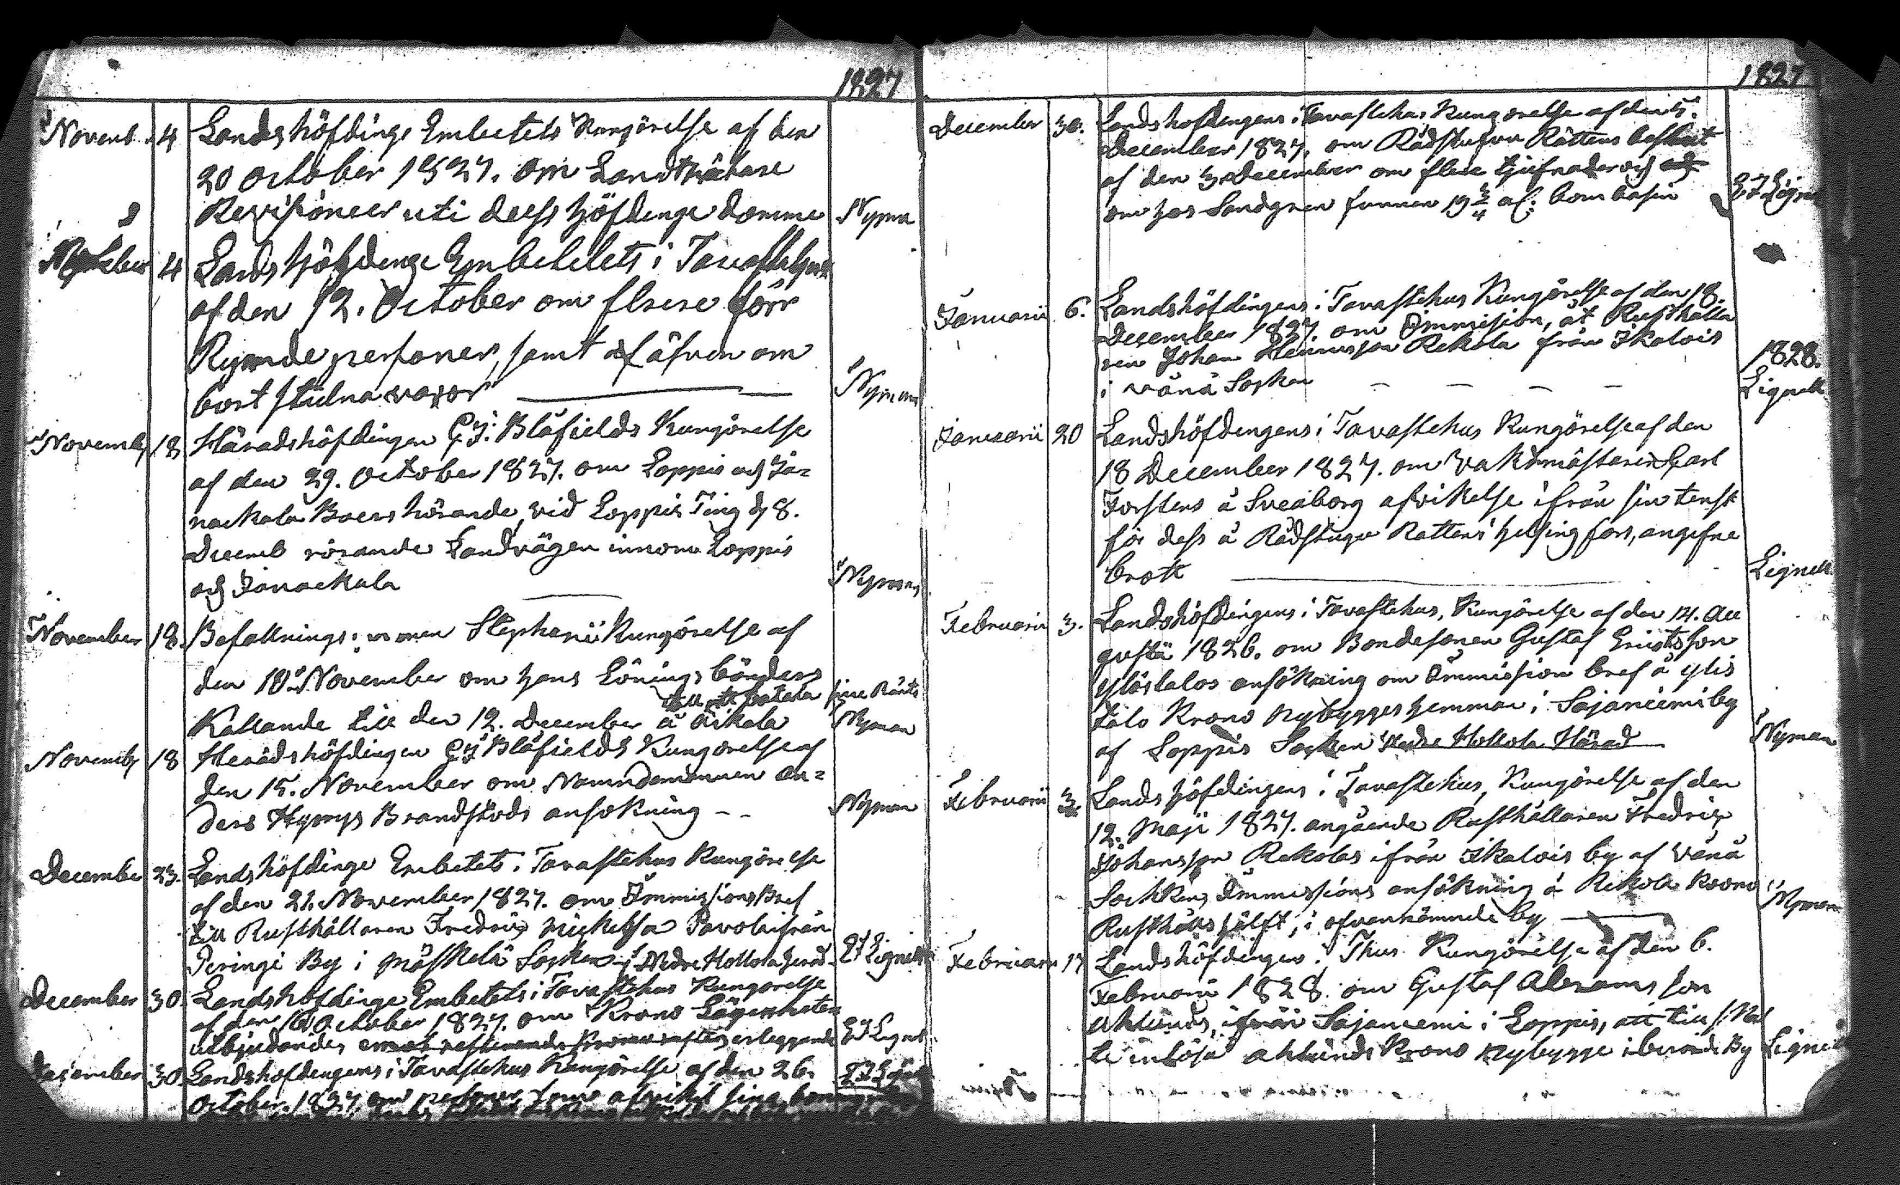 1827
Novemb. 4 Landshöfdinge Embetets Kungörelse af den
20 October 1827. om Landträtare
Revisioner uti dess höfdinge dömme Nyman
4 Lands höfdinge Embetetets i Tavastehus
af den 12. October om flere förr
Rymde personer, samt äfven om
bort stulna varor Nyman
Novemb 18 Häradshöfdingen C. J. Blåfields Kungörelse
af den 29. October 1827. om Loppis och Ja=
nackala Boers hörande, vid Loppis Ting d 8.
Decemb rörande Landvägen innom Loppis
och Janackala Nyman
November 18. Befallnings: mannen Stephanii Kungörelse af
den 10 November om hans Lönings bönders sine Ränte
till att betala
Kallande till den 12. December å Nyman
Novemb 18 Heradshöfdingen C J Blåfields Kungörelse af
den 15. November om Nämndemannen An=
ders Hymys Brandstods ansökning - - Nyman
December 23. Landshöfdinge Embetets i Tavastehus Kungörelse
af den 21. November 1827. om Immissions Bref
till Rusthållaren Fredric Mickelsson Pavola ifrån
By i Mäskelä Socken Nedre Hollola Herad. E J Lignell
December 30. Landshöfdinge Embetets i Tavastehus Kungörelse
af den October 1827. om Krono Lägenheten
utbjudandes erleggande E J Lignel
December 30. Landshöfdingens i Tavastehus Kungörelse af den 26.
October 1827 om personer some afvikit sina
1827
December 30. Landshöfdingens i Tavastehus Kungörelse af den 5.
December 1827. om Rådstufvu Rättens beslut
af den 3 December om flere tjufnader och
om hos Sandgren funnen 19 3/4 al: bombasin E J Lignell
Januarii 6. Landshöfdingens i Tavastehus Kungörelse af den 18.
December 1827. om Immission, åt Rusthålla
ren Johan Henricsson Rekola från Ikalois 1828.
i Vånå Socken - - - - Lignell
Januarii 20 Landshöfdingens i Tavastehus Kungörelse af den
18 December 1827. om Vaktmästaren Carl
Forstens å Sveaborg afvikelse ifrån sin tenst
för dess å Rådstugu Rattens i Helsingfors, angifne
brott Lignell
Februarii 3. Landshöfdingens i Tavastehus, Kungörelse af den 14. Au
gusti 1826. om Bondesonen Gustaf Ericsson
Ylöstalos ansökning om Immission bref å Ylis
talo Krono nybygges hemman i Sajaniemi by
af Loppis Socken Nedre Hollola Härad Nyman
Februarii 3. Landshöfdingens i Tavastehus, Kungörelse af den
12. Maji 1827. angående Rusthållaren Fredric
Johansson Rekolas ifrån Ikalois by af Vånå
Sockens Immissions ansökning å Rekola Krono
Rusthålls hälft, i ofvannämnde by Nyman
Februari 17 Landshöfdingens i Thus Kungörelse af den 6.
Februarii 1828. om Gustaf Abramsson
Aklunds, ifrån Sajaniemi i Loppis, att till
te inlösa Aklunds Krono Nybygge i berörde By Lignell